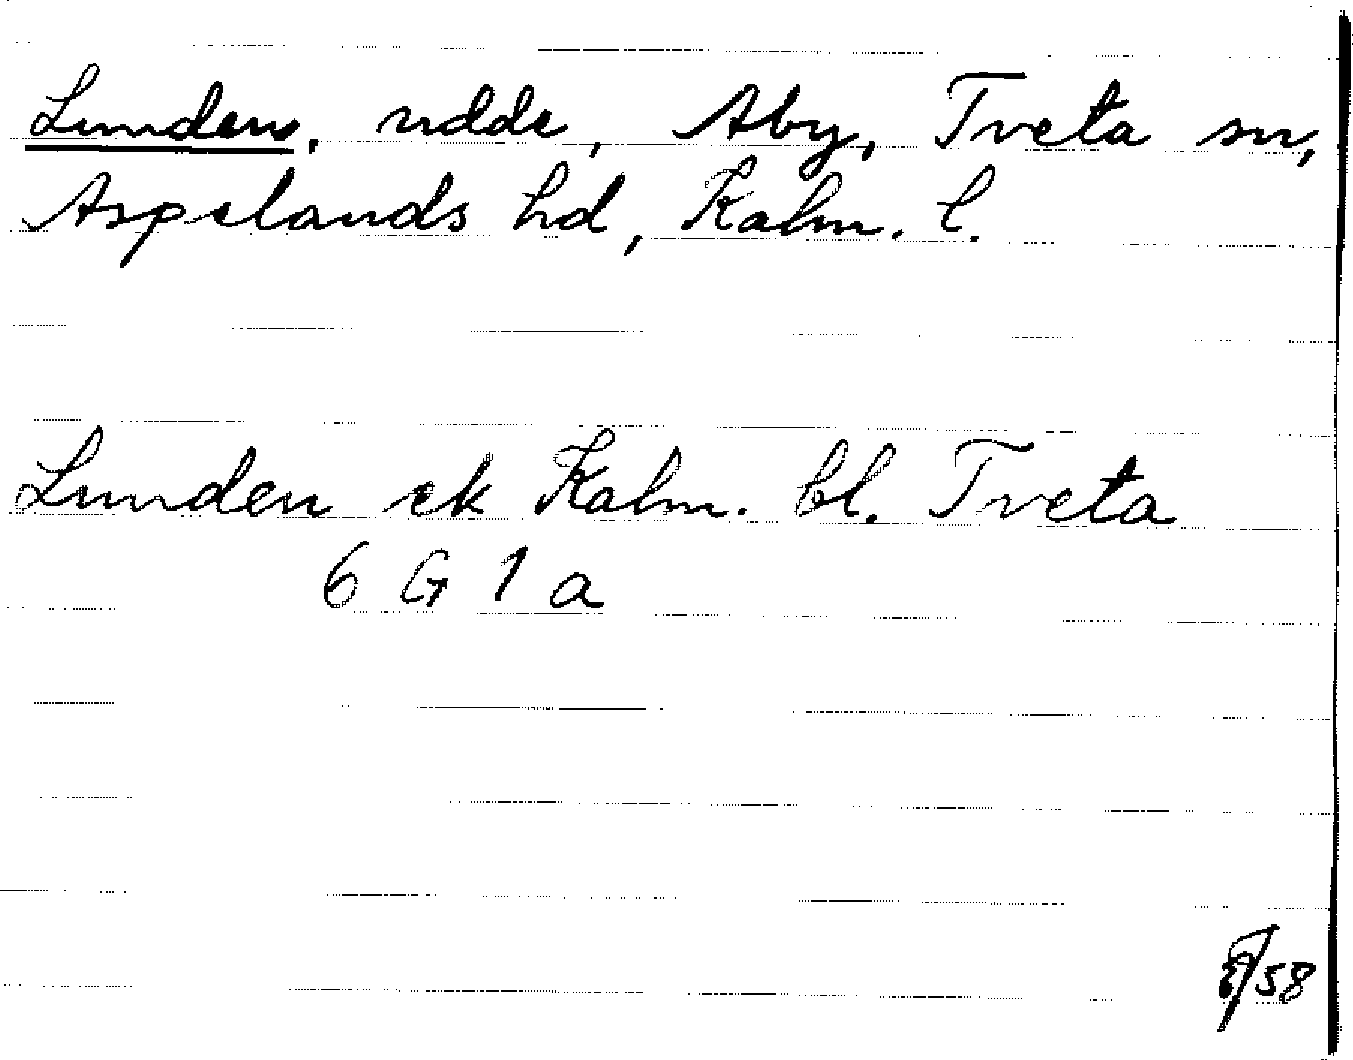 Lunden, udde, Åby, Tveta sn,
Aspelands hd, Kalm. l.
Lunden ek Kalm. bl. Tveta
6 G 1 a
/58